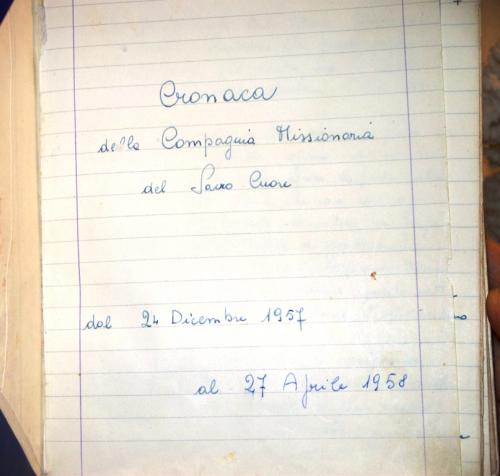 Cronaca
della Compagnia Missionaria
del Sacro Cuore
dal 24 Dicembre 1957
al 27 Aprile 1958